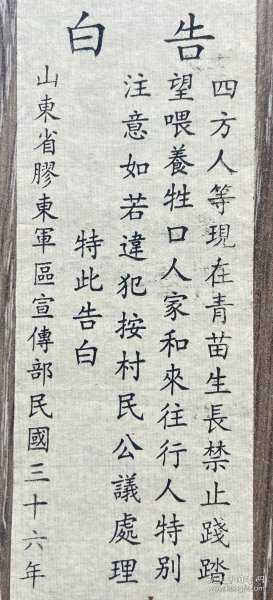 告白
四方人等現在青苗生長禁止踐踏
望喂養牲口人家和來往行人特別
注意如若違犯按村民公議處理
特此告白
山東省膠東軍區宣傳部民國三十六年